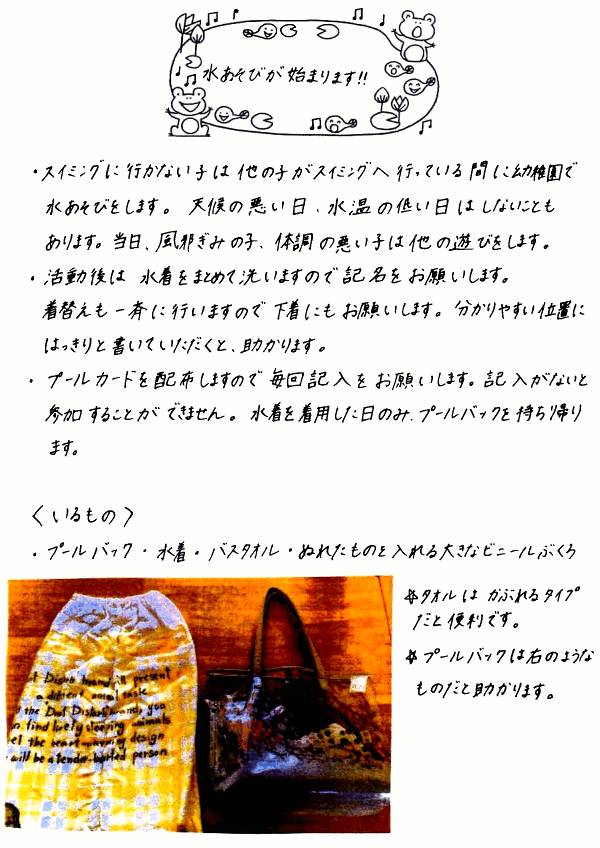 水あそびが始まります!!
・スイミングに行かない子は他の子がスイミングへ行っている間に幼稚園で
水あそびをします。天候の悪い日、水温の低い日はしないことも
あります。当日、風邪ぎみの子、体調の悪い子は他の遊びをします。
・活動後は水着をまとめて洗いますので記名をお願いします。
着替えも一斉に行いますので下着にもお願いします。分かりやすい位置に
はっきりと書いていただくと、助かります。
・プールカードを配布しますので毎回記入をお願いします。記入がないと
参加することができません。水着を着用した日のみ、プールバックを持ち帰り
ます。
〈いるもの〉
・プールバック・水着・バスタオル・ぬれたものを入れる大きなビニールぶくろ
☆タオルはかぶれるタイプ
だと便利です。
☆プールバックは右のような
ものだと助かります。
Dish brand, all present
a different animal taste
the Dot Dish brand, you
find lively sleeping animals
feel the heart-warming design
will be a tender-hearted person